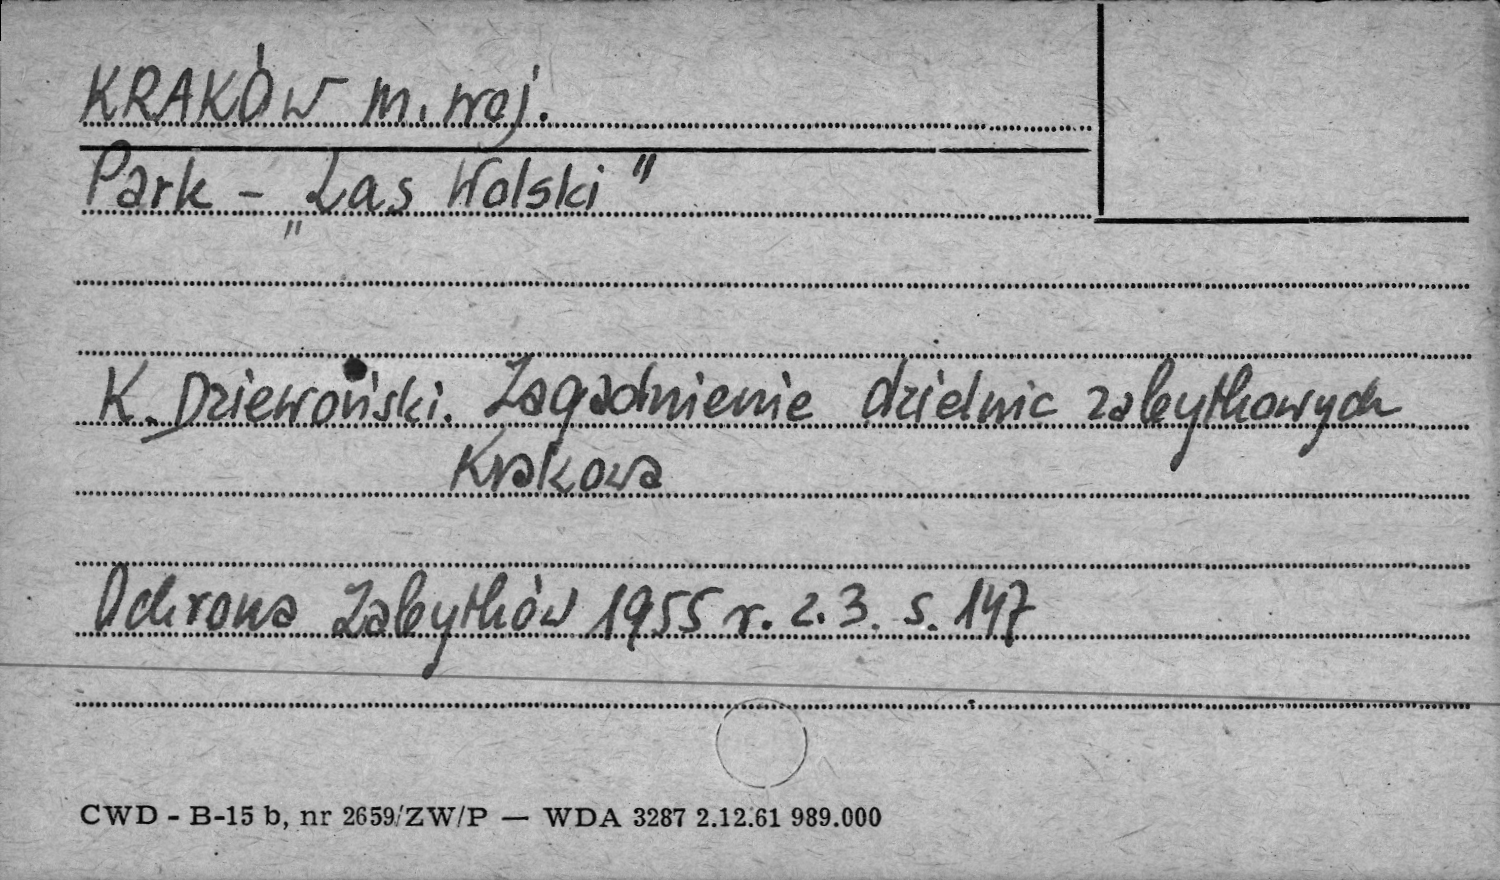 KRAKÓW m. woj.
Park - „Las Wolski"
K. Dziewoński. Zagadnienie dzielnic zabytkowych
Krakowa
Ochrona Zabytków 1955 r. z. 3. s. 147
CWD - B-15 b, nr 2659/ZW/P — WDA 3287 2.12.61 989.000